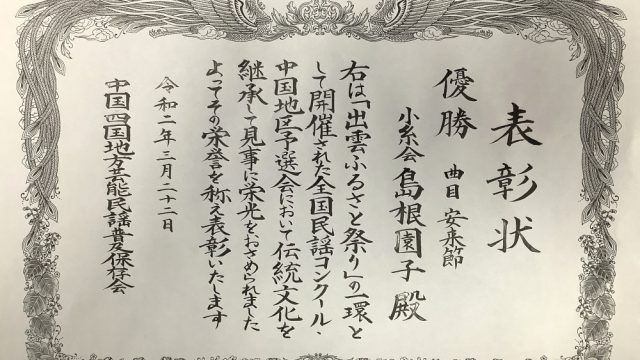 表彰状
優勝 曲目 安来節
小糸会 島根園子殿
右は「出雲ふるさと祭り」の一環と
して開催された全国民謡コンクール・
中国地区予選会において伝統文化を
継承して見事に栄光をおさめられました
よってその栄誉を称え表彰いたします
令和二年三月二十二日
中国四国地方芸能民謡普及保存会